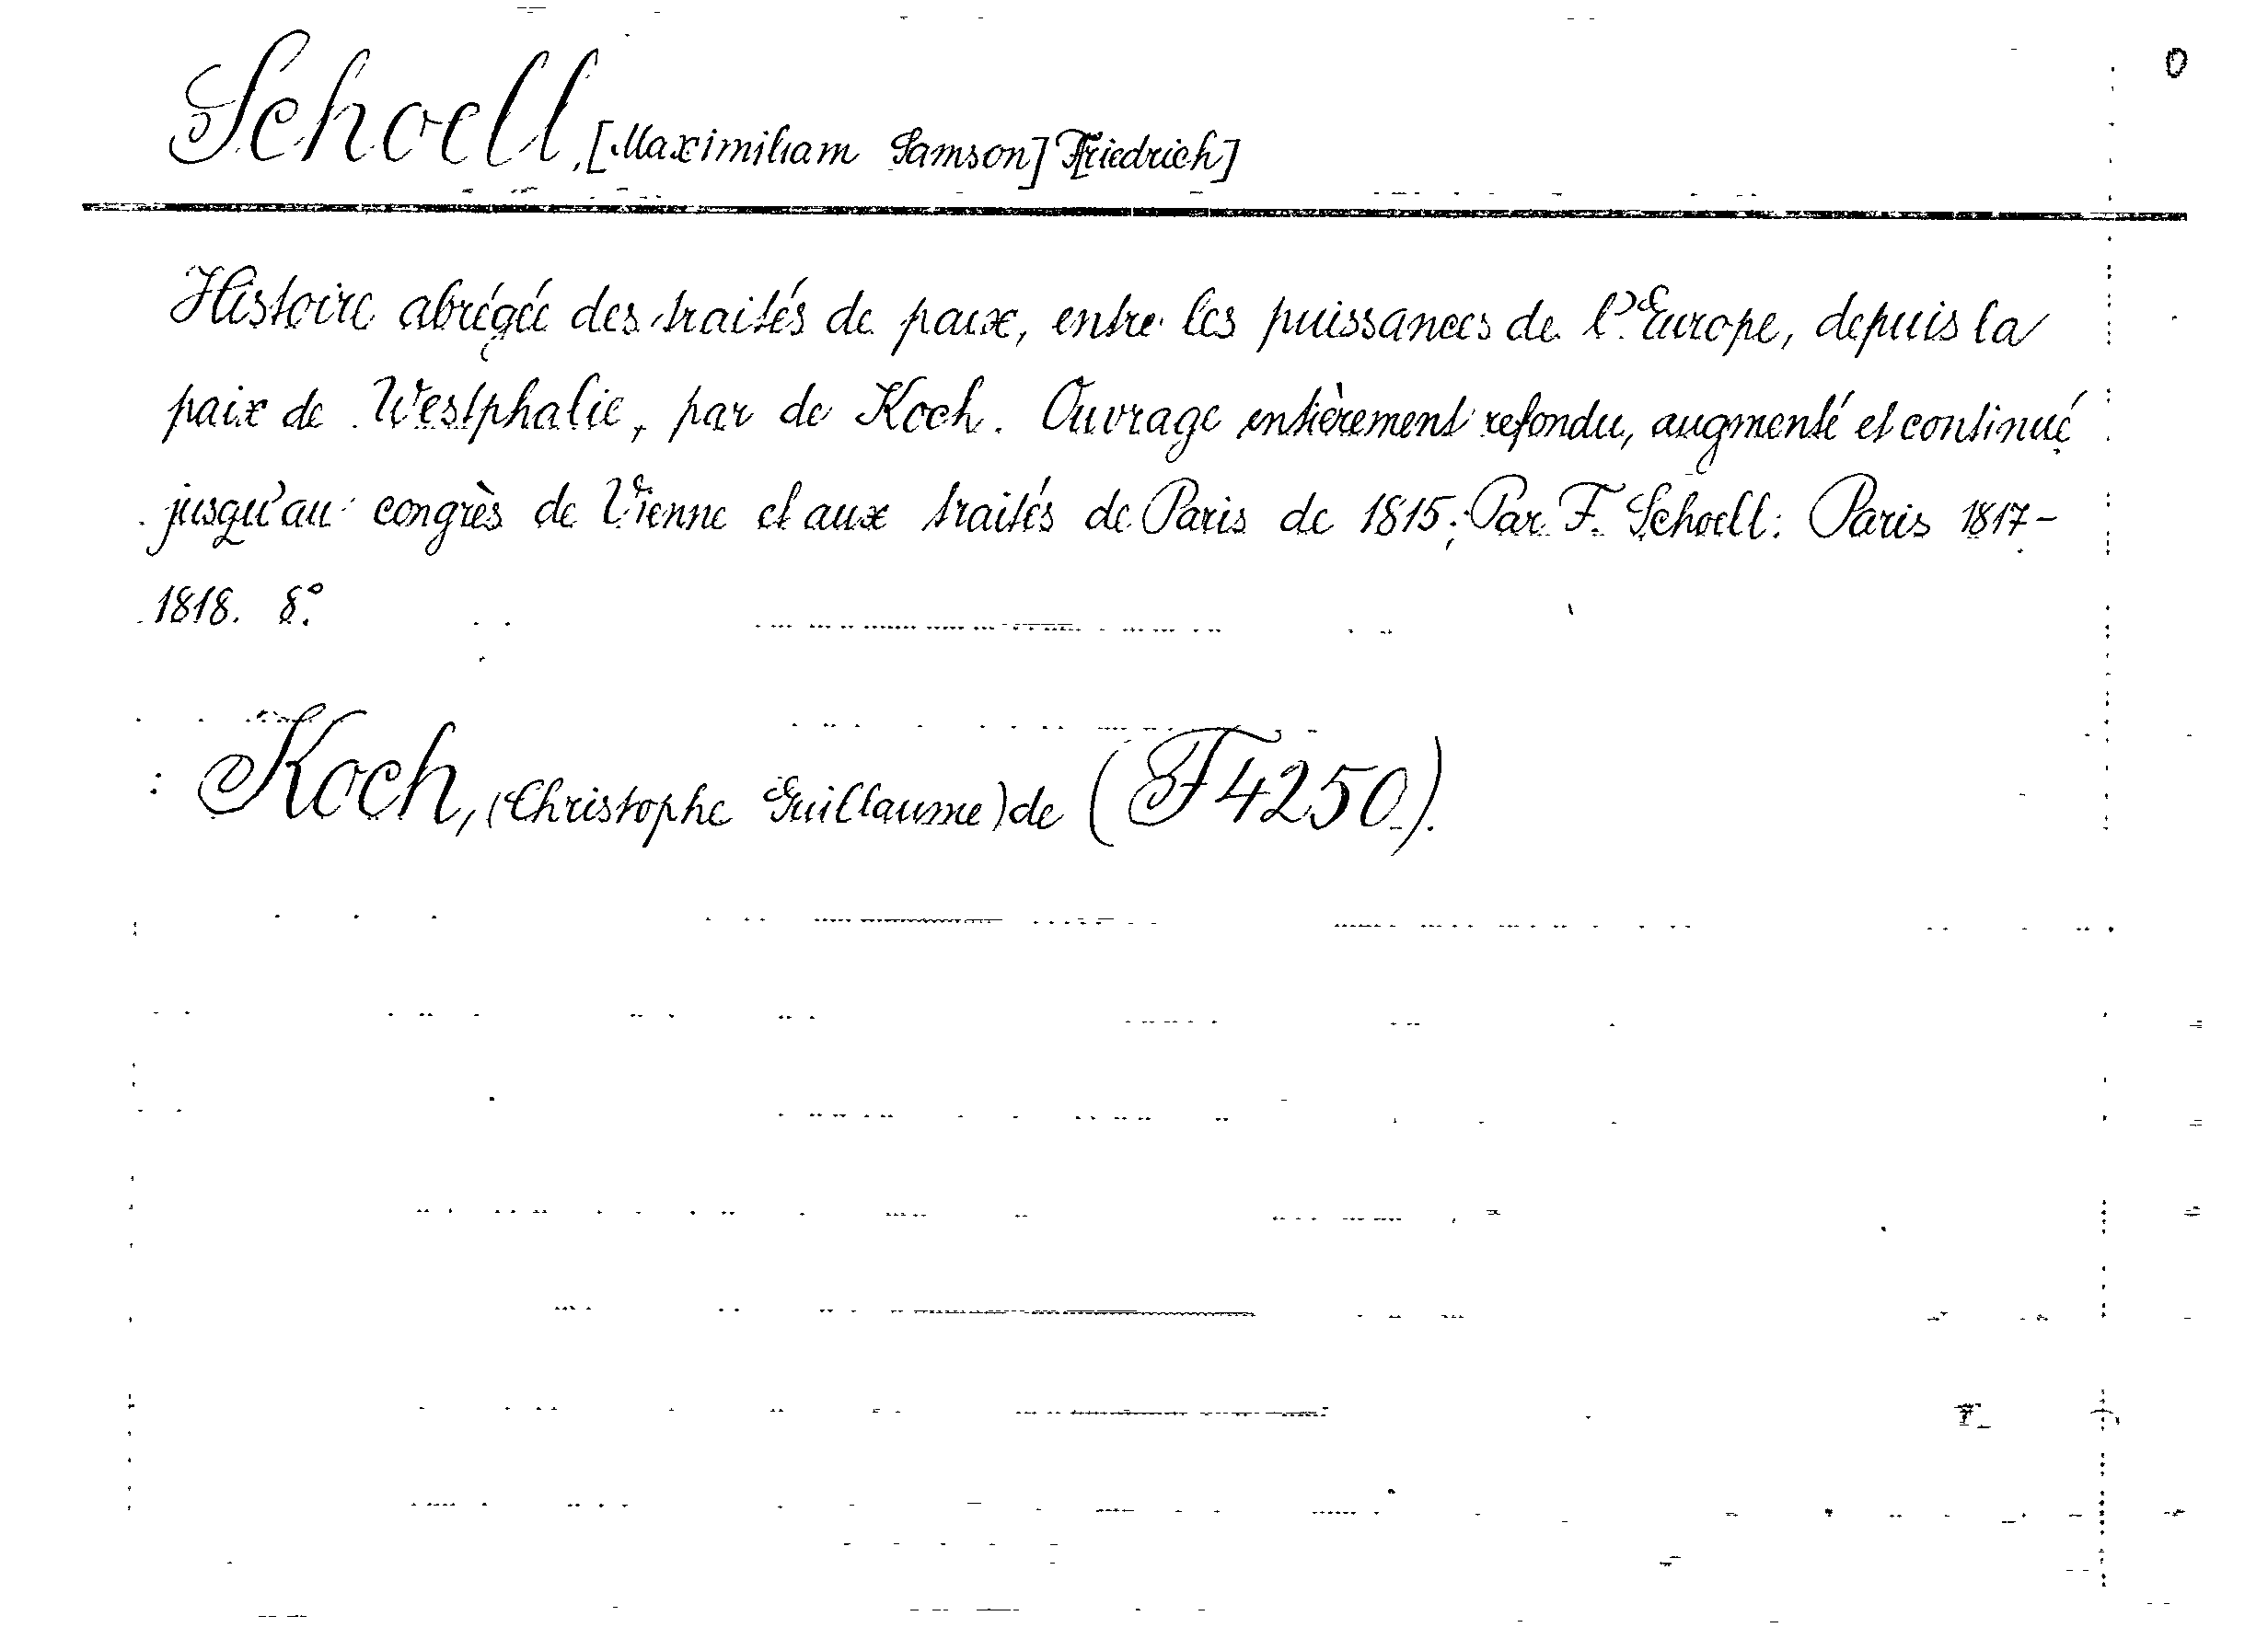 0
Schoell, [Maximiliam Samson] F[riedrich]
Histoire abrégée des traités de paix, entre les puissances de l'Europe, depuis la
paix de Westphalie, par de Koch. Ouvrage entièrement refondu, augmenté et continué
jusqu'au congrès de Vienne et aux traités de Paris de 1815; Par F. Schoell. Paris 1817-
1818. 8°.
Koch, (Christophe Guillaume) de (F 4250).